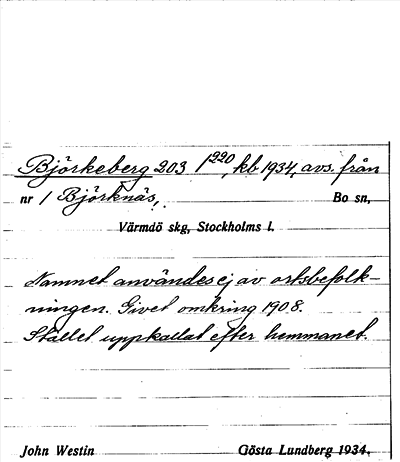 Björkeberg 203 1²²⁰, kb 1934, avs. från
nr 1 Björknäs, Bo sn,
Värmdö skg, Stockholms l.
Namnet användes ej av ortsbefolk-
ningen. Givet omkring 1908.
Stället uppkallat efter hemmanet.
John Westin Gösta Lundberg 1934.